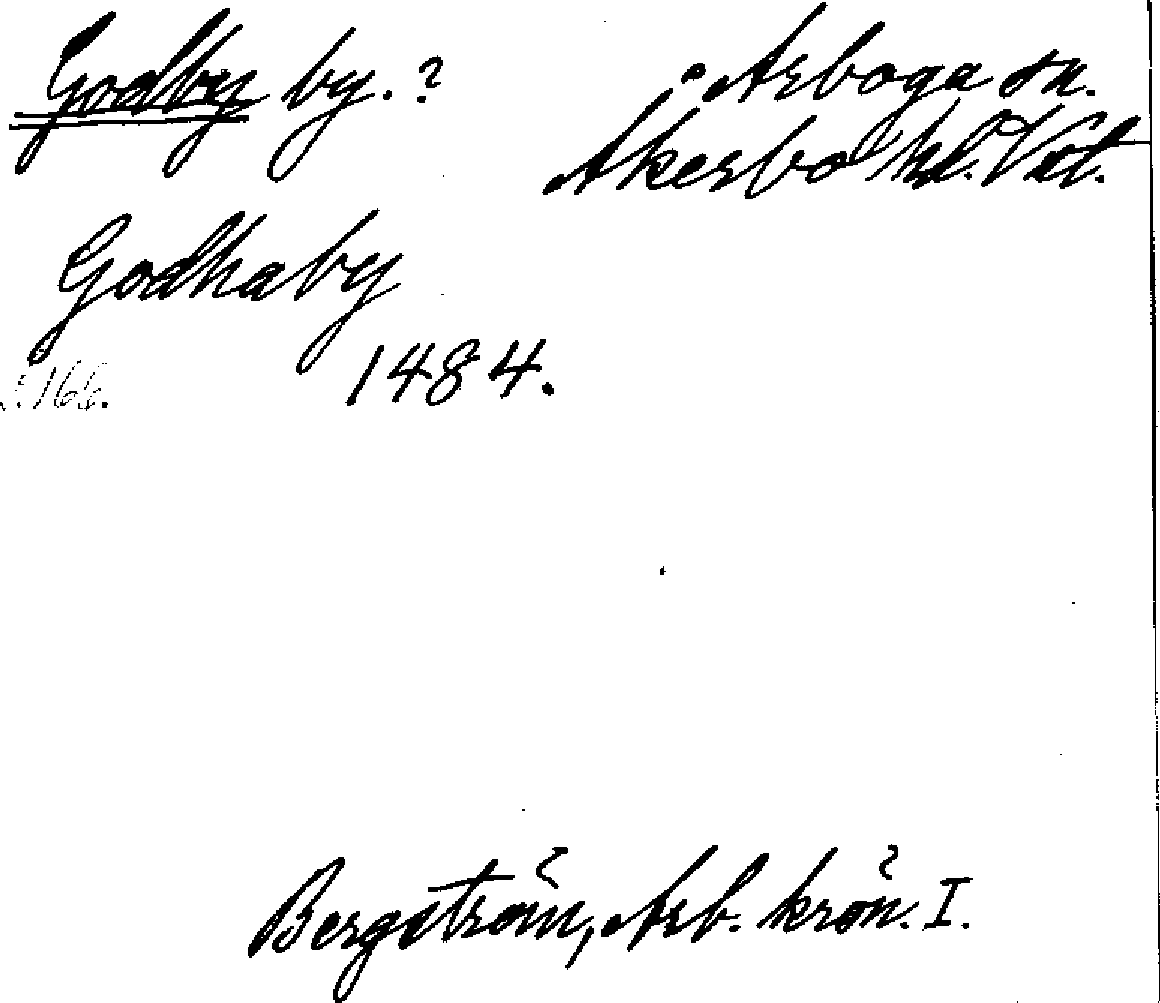 Godby by. ?
Arboga sn.
Åkerbo hd. Vstl.
Godhaby
1484.
s. 166.
Bergström, Arb. krön. I.